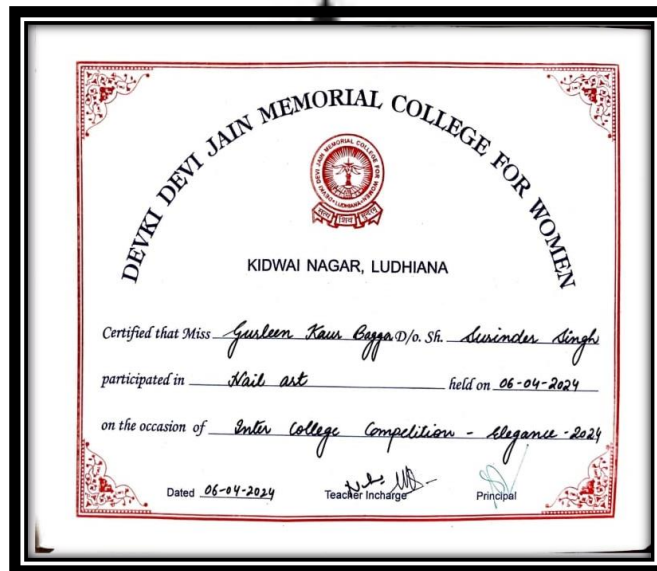 DEVKI DEVI JAIN MEMORIAL COLLEGE FOR WOMEN
DEVKI DEVI JAIN MEMORIAL COLLEGE FOR WOMEN
LUDHIANA
सत्यं शिवं सुन्दरम्
KIDWAI NAGAR, LUDHIANA
Certified that Miss Gurleen Kaur Bagga D/o. Sh. Surinder Singh
participated in Nail art held on 06-04-2024
on the occasion of Inter College Competition - Elegance - 2024
Dated 06-04-2024 Teacher Incharge Principal